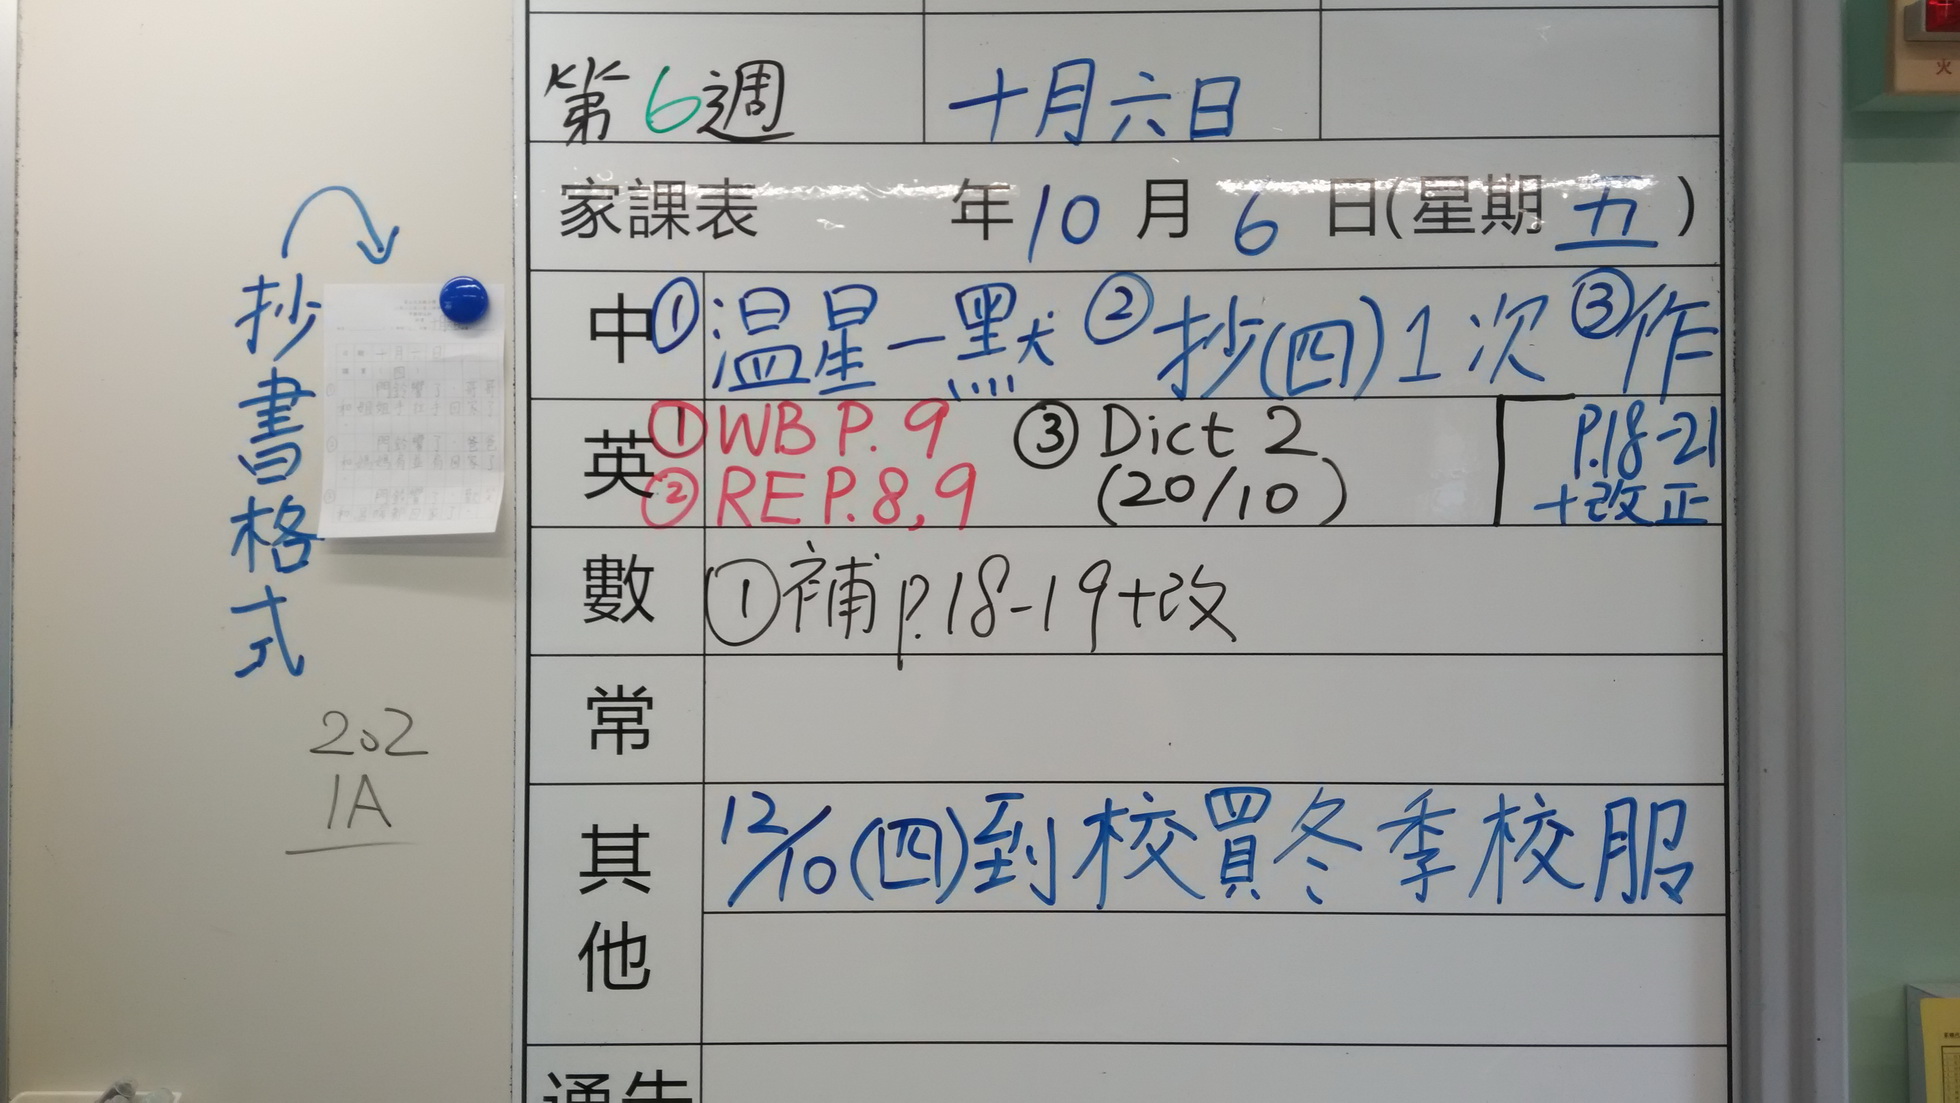 第6週 十月六日
家課表 年10月6日(星期五)
中 ①温星一默 ②抄(四)1次 ③作
P.18-21
+改正
英 ①WB P.9 ③Dict 2
②RE P.8,9 (20/10)
數 ①補p.18-19+改
常
其他 12/10(四)到校買冬季校服
通告
抄書格式
202
1A
火